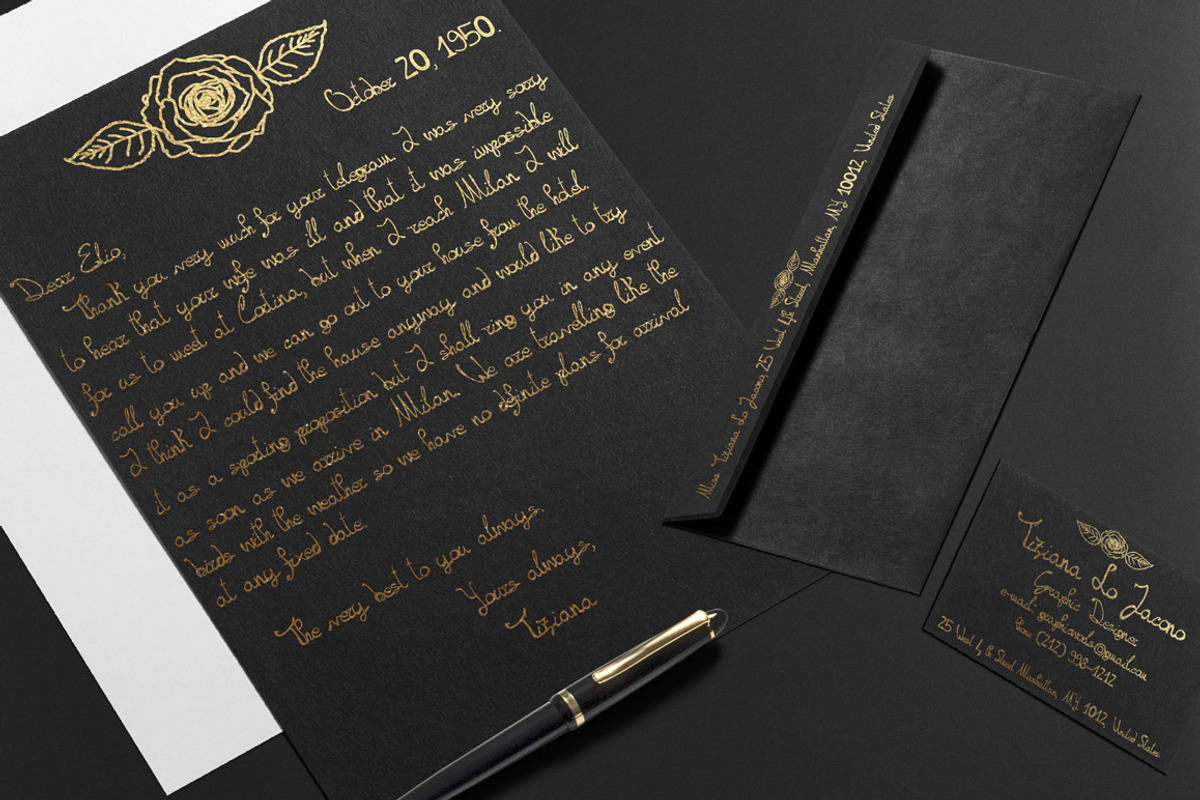 October 20, 1950.
Dear Elio,
Thank you very much for your telegram. I was very sorry
to hear that your wife was ill and that it was impossible
for us to meet at Cortina, but when I reach Milan I will
call you up and we can go out to your house from the hotel.
I think I could find the house anyway and would like to try
it as a sporting proposition but I shall ring you in any event
as soon as we arrive in Milan. We are travelling like the
birds with the weather so we have no definite plans for arrival
at any fixed date.
The very best to you always.
Yours always,
Tiziana
Miss Tiziana Lo Jacono, 25 West 4th Street Manhattan, NY 10012, United States
Tiziana Lo Jacono
Graphic Designer
e-mail: @gmail.com
Phone (212) 998-1212
25 West 4th Street Manhattan, NY 1012, United States